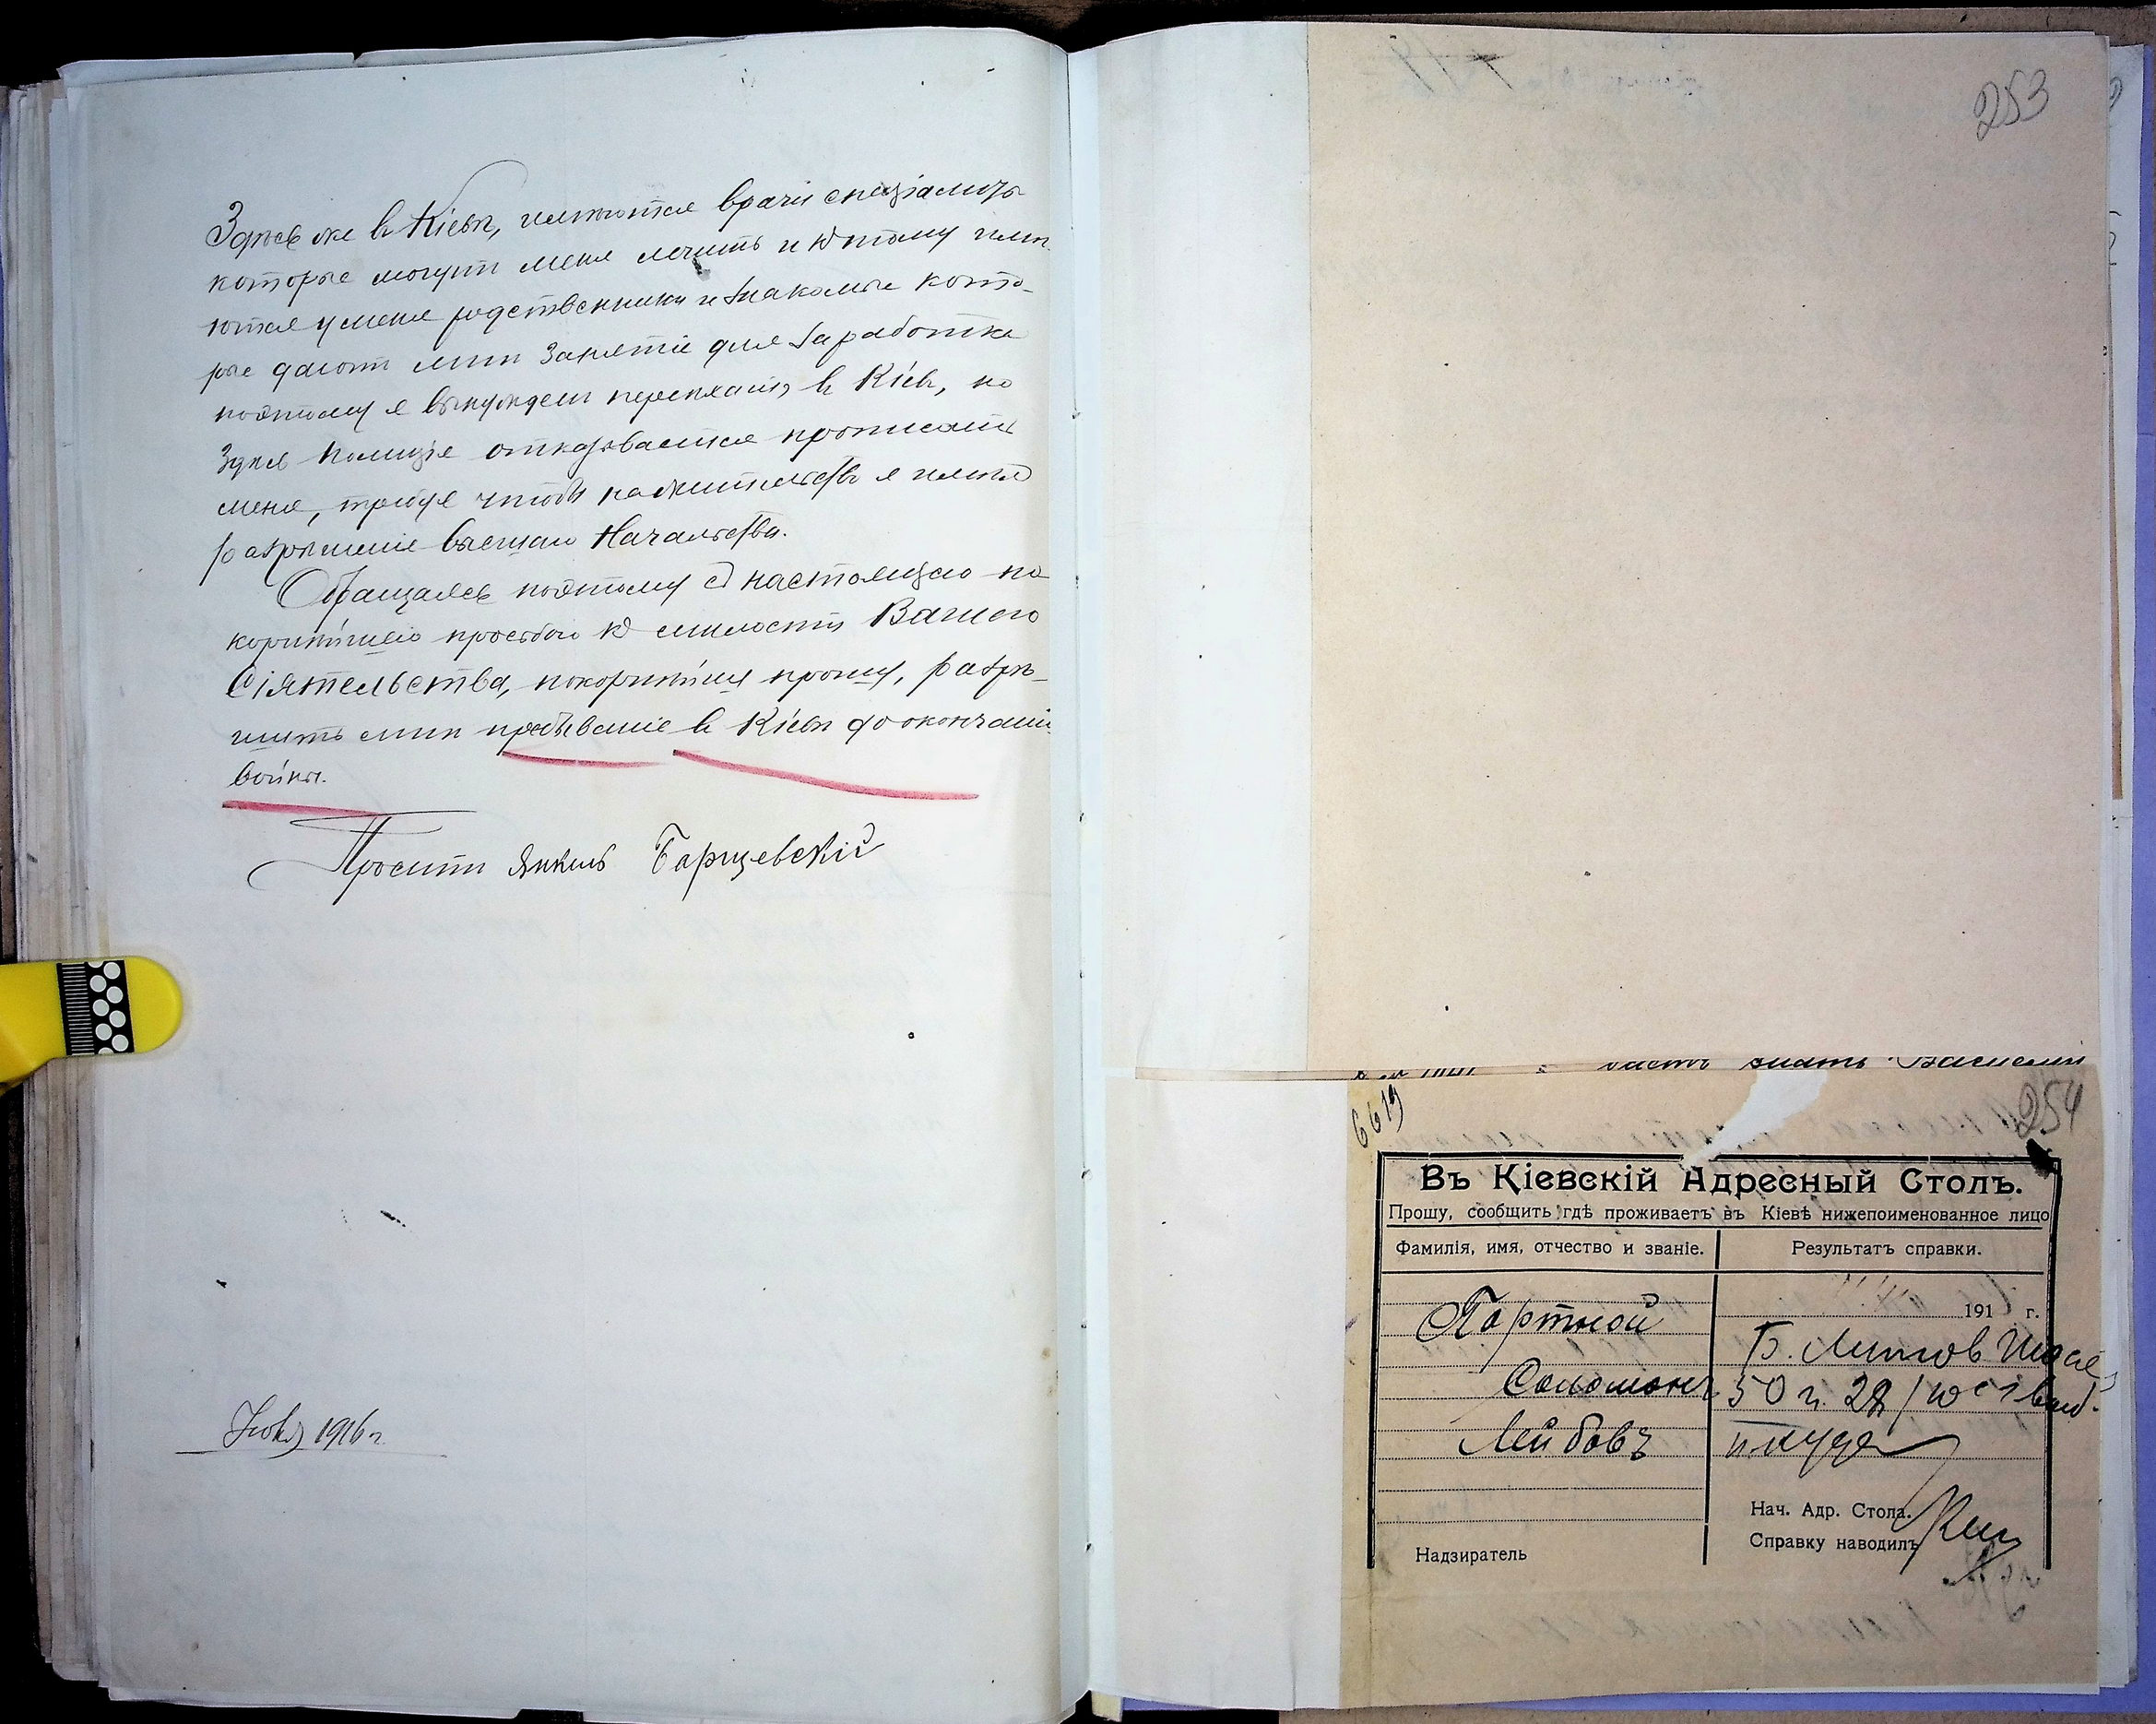 Здѣсь же в Кіевѣ, имѣются врачи спеціалисты
которые могутъ меня лечить и к тому имѣ-
ются у меня родственники и знакомые кото-
рые даютъ мнѣ занятіе для заработка
поэтому я вынужден переѣхать в Кіев, но
здѣсь полиція отказывается прописать
меня, требуя чтобы на жительство я имѣл
разрѣшеніе высшаго Начальства.
Обращаясь поэтому с настоящею по-
корнѣйшею просьбою к милости Вашего
Сіятельства, покорнѣйше прошу, разрѣ-
шить мнѣ пребываніе в Кіевѣ до окончанія
войны.
Проситъ Янкель Барщевскій
1916 г.
253
знать
6619
254
Въ Кіевскій Адресный Столъ.
Прошу, сообщить гдѣ проживаетъ въ Кіевѣ нижепоименованное лицо
Фамилія, имя, отчество и званіе.
Результатъ справки.
191 г.
Портной
Соломонъ
Лейбовъ
Б.
50
Нач. Адр. Стола.
Справку наводилъ
Надзиратель